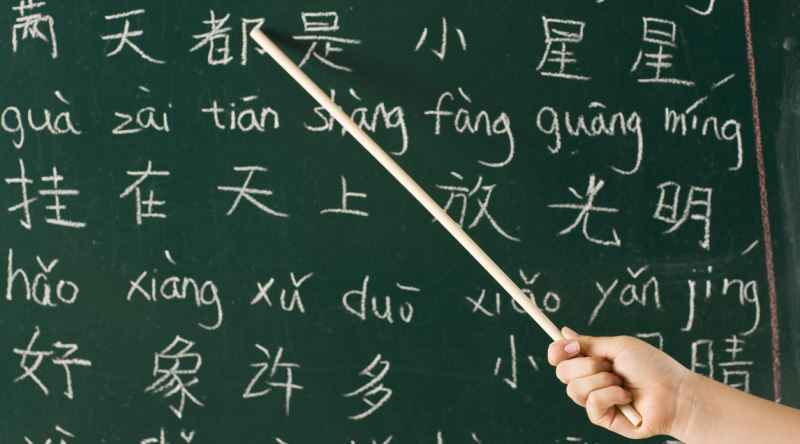 满 天 都 是 小 星 星
guà zài tiān shàng fàng guāng míng
挂 在 天 上 放 光 明
hǎo xiàng xǔ duō xiǎo yǎn jíng
好 象 许 多 小 晴